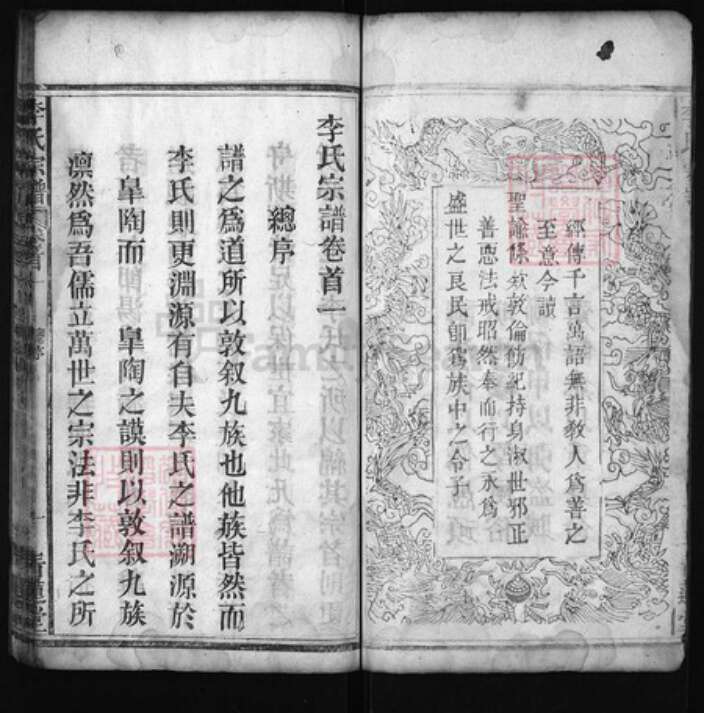 經傳千言萬語無非教人為善之
至意今讀
聖諭條欵敦倫飭紀持身淑世邪正
善惡法戒昭然奉而行之永為
盛世之良民即為族中之令子
李氏宗譜卷首一
總序
譜之為道所以敦叙九族也他族皆然而
李氏則更淵源有自夫李氏之譜溯源於
臯陶而臯陶之謨則以敦叙九族
凛然為吾儒立萬世之宗法非李氏之所
李氏宗譜
卷首一
總序
一